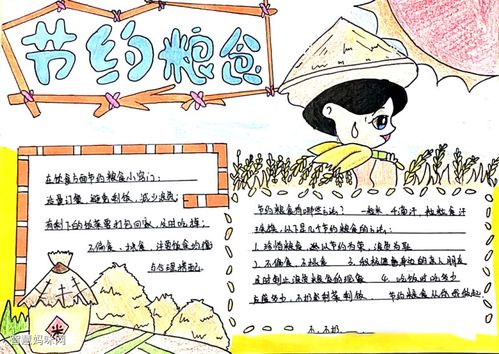 节约粮食
在饮食方面节约粮食小窍门:
适量订餐,避免剩饭,减少浪费;
有剩下的饭菜要打包回家,及时吃掉;
不偏食、挑食,注重饭食的
与合理搭配。
节约粮食有哪些方法?一粒米千滴汗,粒粒食汗
珠换,以下是几个节约粮食的方法:
1、珍惜粮食,以节约为荣,浪费为耻
2、不偏食、不挑食 3、积极提醒身边的亲人朋友
及时制止浪费粮食的现象 4、吃饭时吃多少
盛多少,不扔剩菜剩饭。节约粮食从你我做起
不,不扔
米
智慧妈咪网